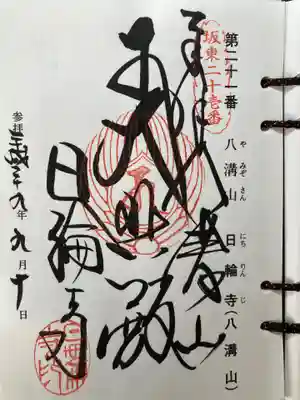 第二十一番 八溝山 日輪寺(八溝山)
や みぞ さん にち りん じ
坂東二十壱番
八溝山
大悲殿
日輪寺
参拝 平成二十九年 九月十日